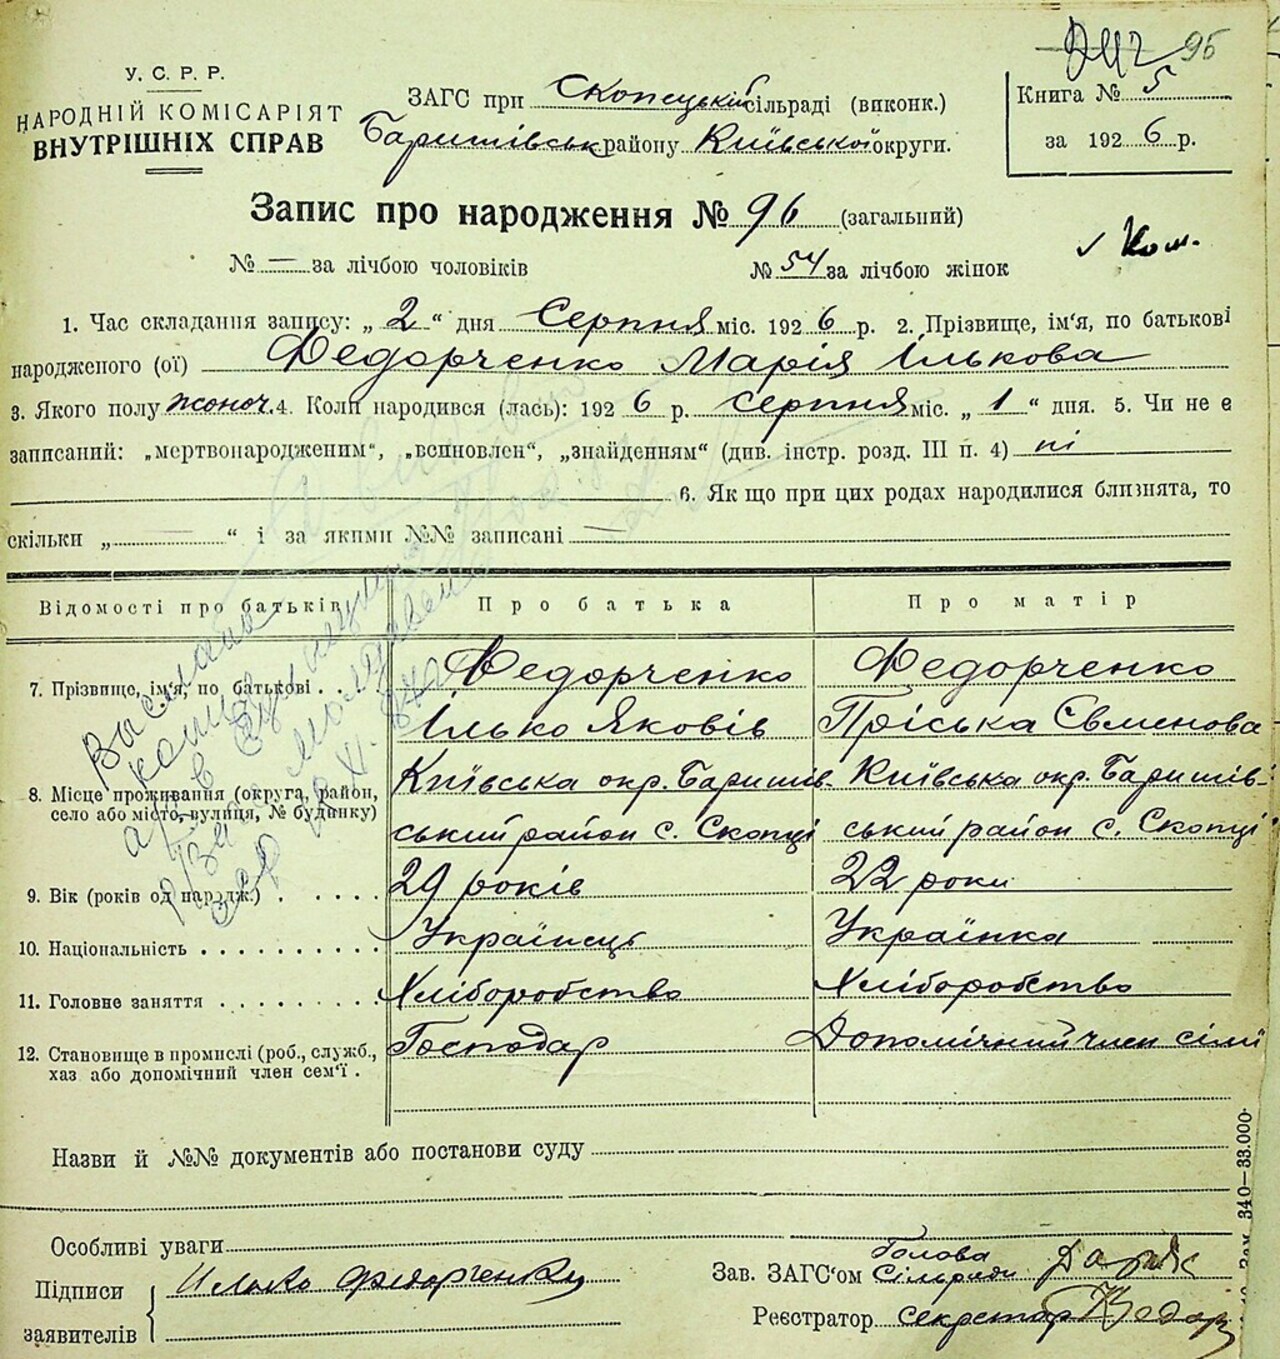 95
У. С. Р. Р.
НАРОДНІЙ КОМІСАРІЯТ
ВНУТРІШНІХ СПРАВ
ЗАГС при Скопецькій сільраді (виконк.)
Баришівськ району Київської округи.
Книга № 5
за 1926 р.
Запис про народження № 96 (загальний)
№ — за лічбою чоловіків
№ 54 за лічбою жінок
1. Час складання запису: „2“ дня Серпня міс. 1926 р. 2. Прізвище, ім'я, по батькові
народженого (ої) Федорченко Марія Ількова
3. Якого полу жоноч. 4. Коли народився (лась): 1926 р. серпня міс. „1“ дня. 5. Чи не є
записаний: „мертвонародженим“, „всиновлен“, „знайденням“ (див. інстр. розд. III п. 4) ні
6. Як що при цих родах народилися близнята, то
скільки „—“ і за якими №№ записані —
Відомості про батьків
Про батька
Про матір
7. Прізвище, ім'я, по батькові
Федорченко
Ілько Яковів
Федорченко
Пріська Євменова
8. Місце проживання (округа, район,
село або місто, вулиця, № будинку)
Київська окр. Баришів-
ський район с. Скопці
Київська окр. Баришів-
ський район с. Скопці
9. Вік (років од народж.)
29 років
22 роки
10. Національність
Українець
Українка
11. Головне заняття
Хліборобство
Хліборобство
12. Становище в промислі (роб., служб.,
хаз або допомічний член сем'ї .
Господар
Допомічний член сімї
Назви й №№ документів або постанови суду
Особливі уваги
Підписи
заявителів
Илько Федорченко
Зав. ЗАГС'ом Голова
Сільради
Реєстратор секретар
340—33.000